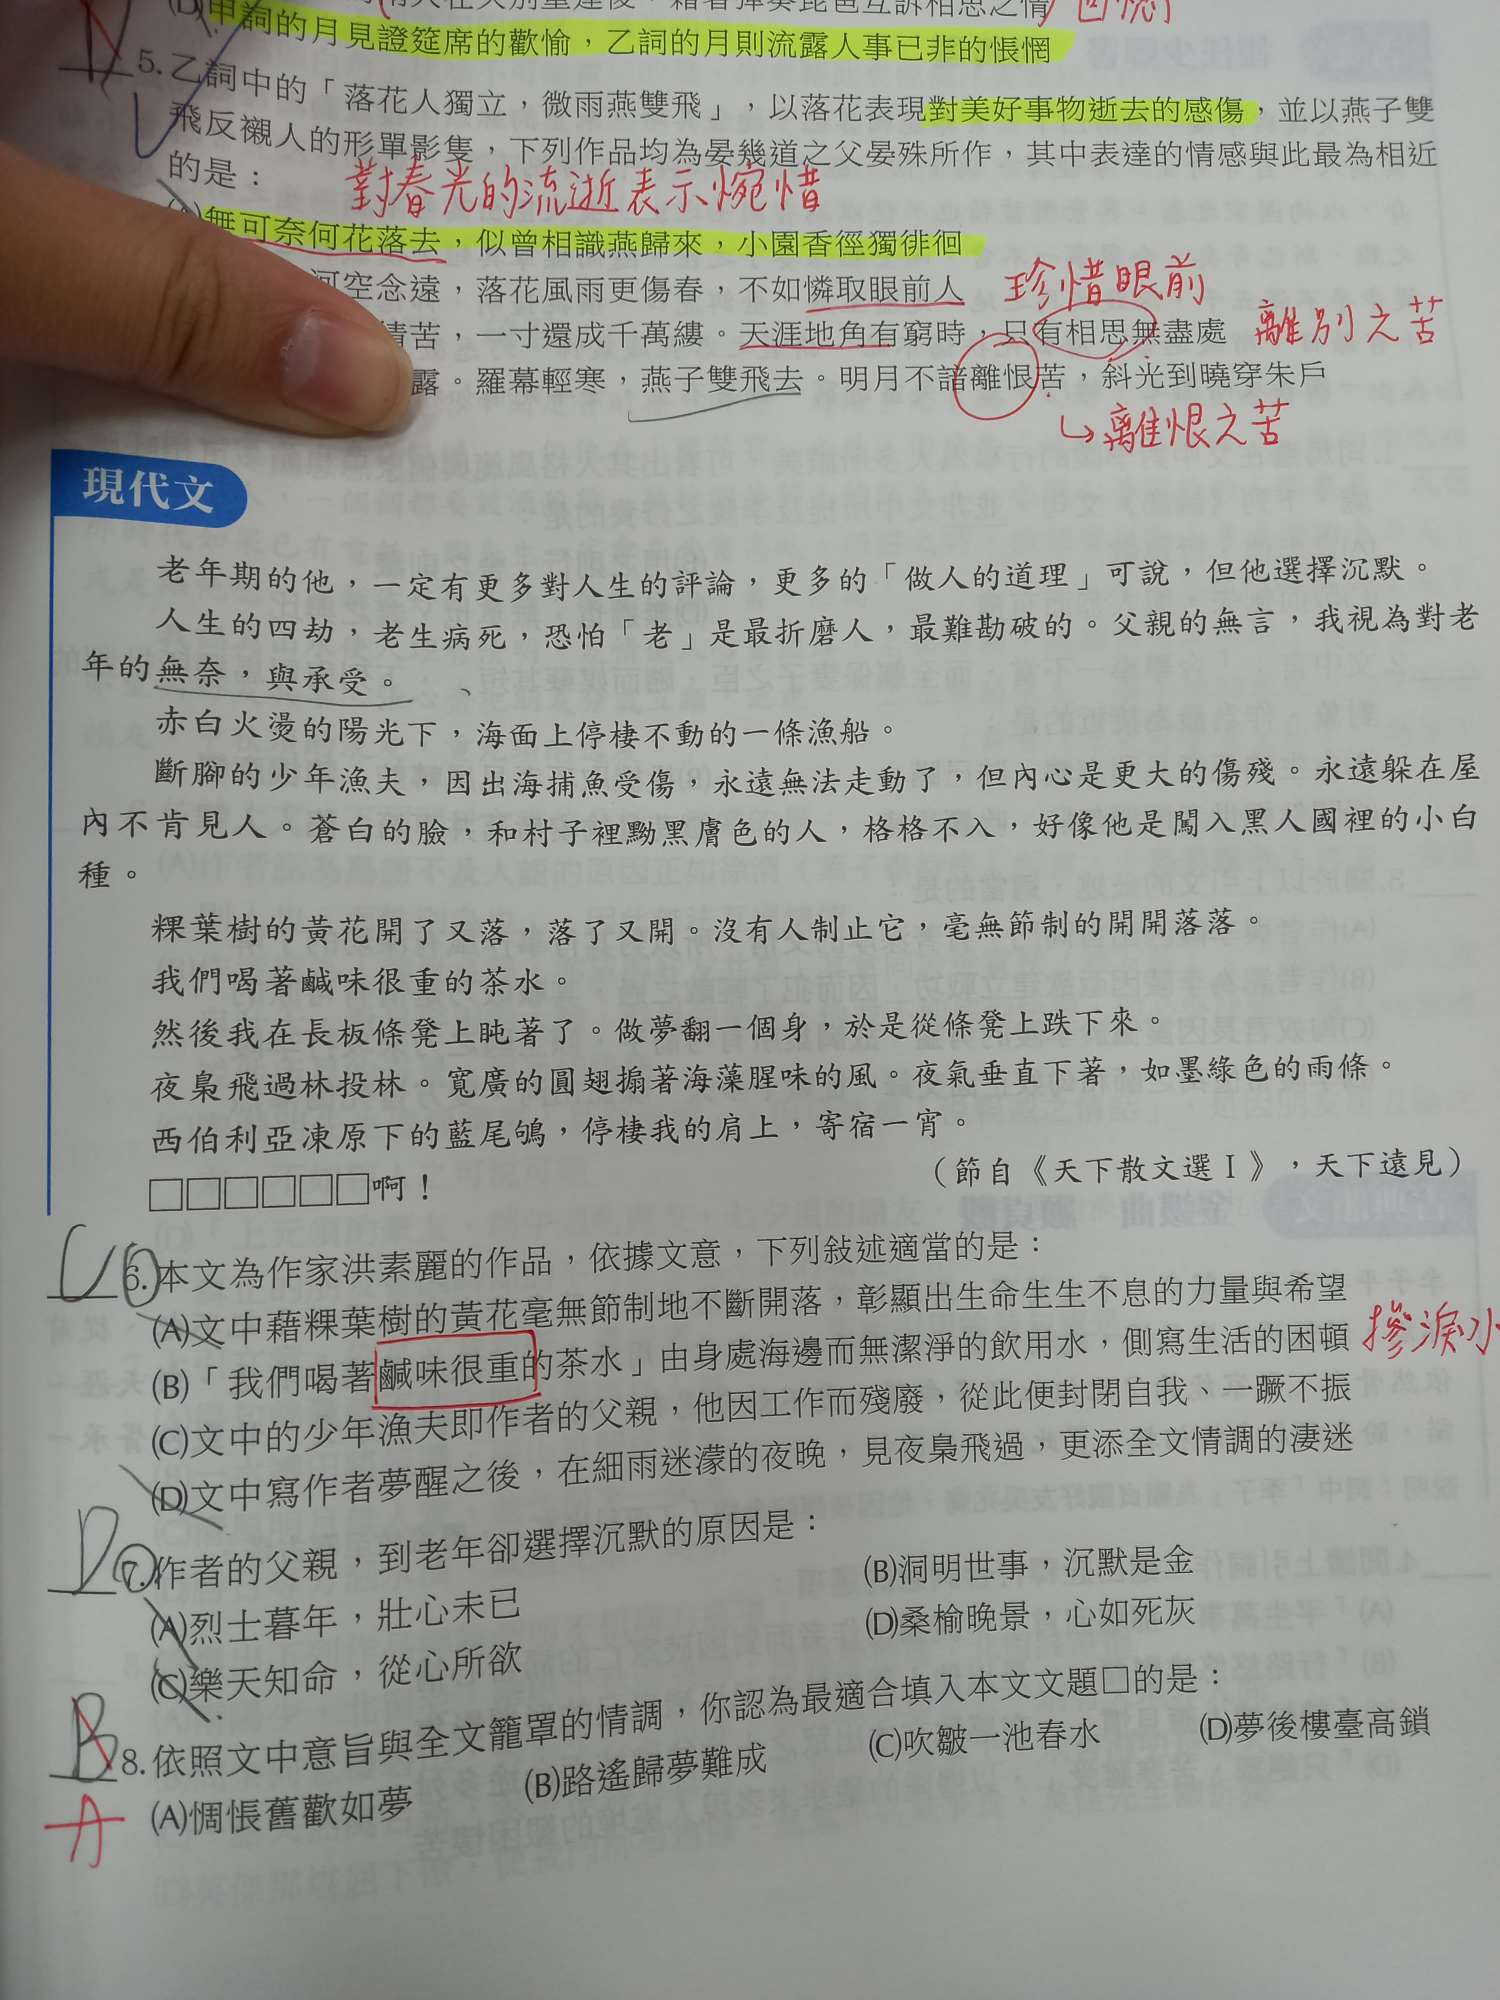 甲詞的月見證筵席的歡愉，乙詞的月則流露人事已非的悵惘
5.乙詞中的「落花人獨立，微雨燕雙飛」，以落花表現對美好事物逝去的感傷，並以燕子雙
飛反襯人的形單影隻，下列作品均為晏幾道之父晏殊所作，其中表達的情感與此最為相近
的是：
對春光的流逝表示惋惜
(A)無可奈何花落去，似曾相識燕歸來，小園香徑獨徘徊
河空念遠，落花風雨更傷春，不如憐取眼前人 珍惜眼前
情苦，一寸還成千萬縷。天涯地角有窮時，只有相思無盡處 離別之苦
露。羅幕輕寒，燕子雙飛去。明月不諳離恨苦，斜光到曉穿朱戶
↳離恨之苦
現代文
老年期的他，一定有更多對人生的評論，更多的「做人的道理」可說，但他選擇沉默。
人生的四劫，老生病死，恐怕「老」是最折磨人，最難勘破的。父親的無言，我視為對老
年的無奈，與承受。
赤白火燙的陽光下，海面上停棲不動的一條漁船。
斷腳的少年漁夫，因出海捕魚受傷，永遠無法走動了，但內心是更大的傷殘。永遠躲在屋
內不肯見人。蒼白的臉，和村子裡黝黑膚色的人，格格不入，好像他是闖入黑人國裡的小白
種。
粿葉樹的黃花開了又落，落了又開。沒有人制止它，毫無節制的開開落落。
我們喝著鹹味很重的茶水。
然後我在長板條凳上盹著了。做夢翻一個身，於是從條凳上跌下來。
夜梟飛過林投林。寬廣的圓翅搧著海藻腥味的風。夜氣垂直下著，如墨綠色的雨條。
西伯利亞凍原下的藍尾鴝，停棲我的肩上，寄宿一宵。
□□□□□□啊！
（節自《天下散文選Ⅰ》，天下遠見）
C 6.本文為作家洪素麗的作品，依據文意，下列敍述適當的是：
(A)文中藉粿葉樹的黃花毫無節制地不斷開落，彰顯出生命生生不息的力量與希望
(B)「我們喝著鹹味很重的茶水」由身處海邊而無潔淨的飲用水，側寫生活的困頓 摻淚水
(C)文中的少年漁夫即作者的父親，他因工作而殘廢，從此便封閉自我、一蹶不振
(D)文中寫作者夢醒之後，在細雨迷濛的夜晚，見夜梟飛過，更添全文情調的淒迷
D 7.作者的父親，到老年卻選擇沉默的原因是：
(A)烈士暮年，壯心未已
(B)洞明世事，沉默是金
(C)樂天知命，從心所欲
(D)桑榆晚景，心如死灰
B 8.依照文中意旨與全文籠罩的情調，你認為最適合填入本文文題□的是：
A (A)惆悵舊歡如夢
(B)路遙歸夢難成
(C)吹皺一池春水
(D)夢後樓臺高鎖